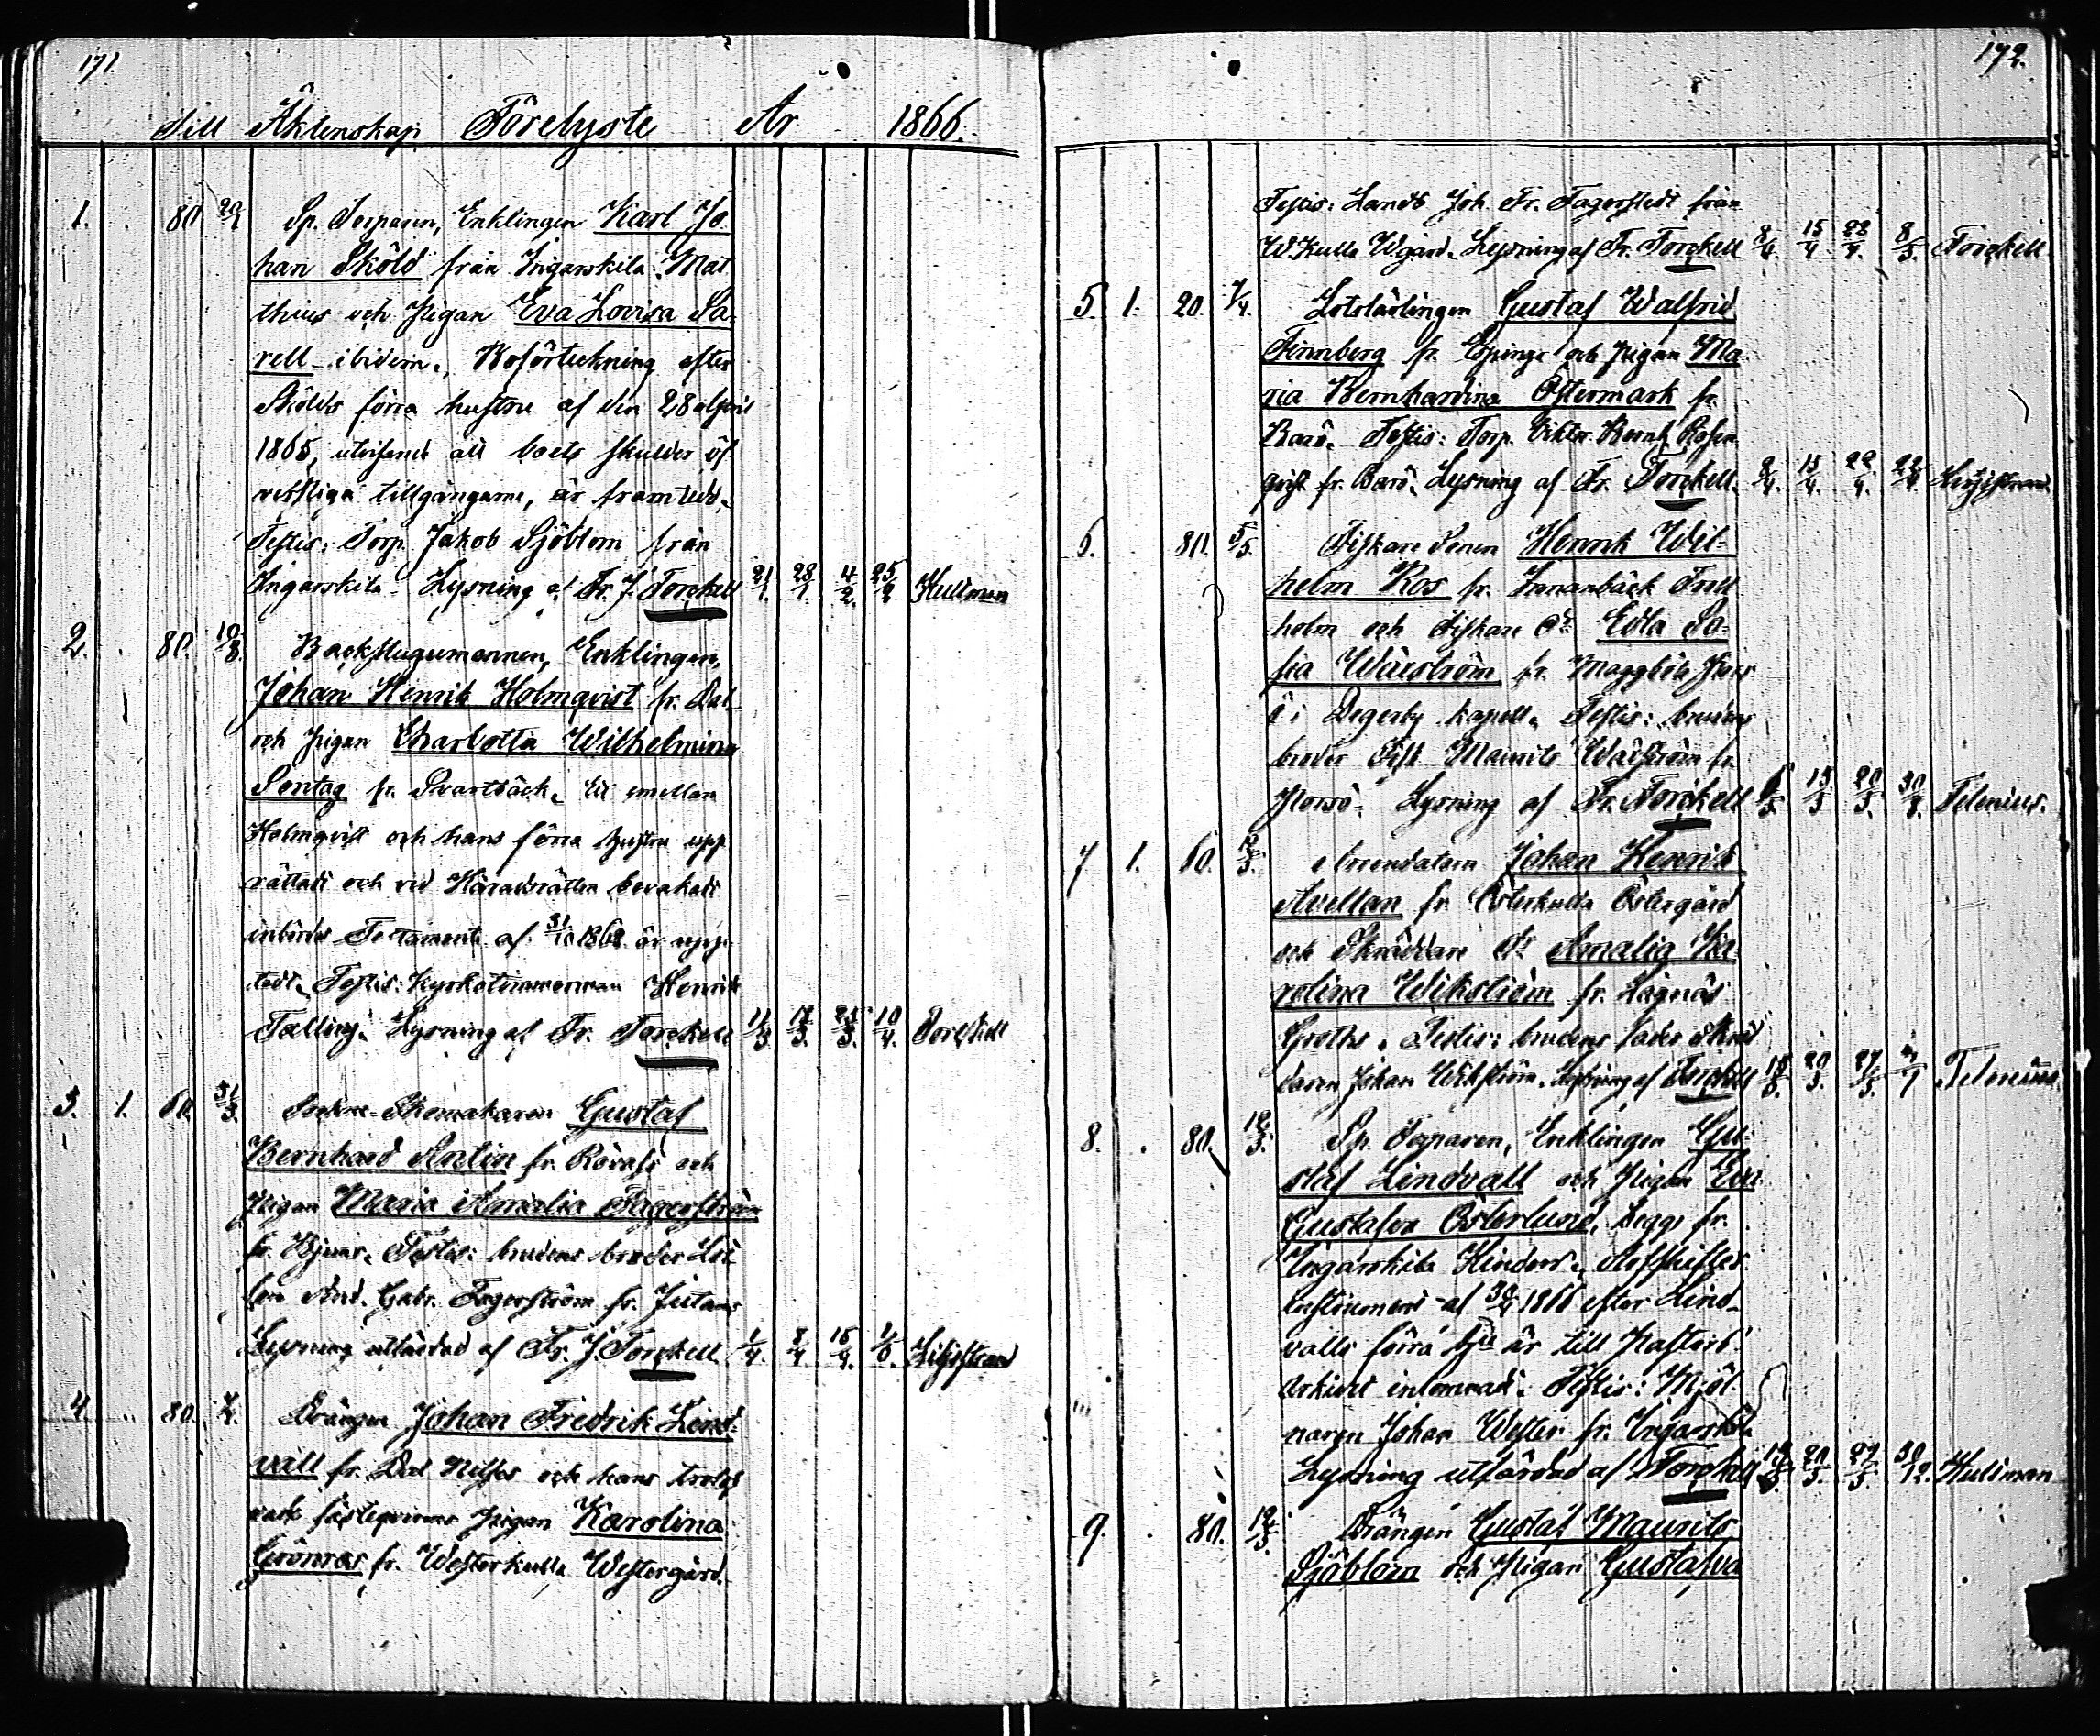 171.
Till Äktenskap Förelyste År 1866.
1. 80 20/1 Sp. Torparen, Enklingen Karl Jo-
han Sköld från Ingarskila Mat
thius och Pigan Eva Lovisa Sa-
rell ibidem. Boförteckning efter
Skölds förra hustru af den 28 april
1865, utvisande att boets skulder öf-
verstiga tillgångarne, är framtedd.
Testis: Torp. Jakob Sjöblom från
Ingarskila. Lysning af Fr. J. Torckell 21/1. 28/1. 4/2. 25/2 Hultman
2. 80. 10/3. Backstugumannen, Enklingen,
Johan Henrik Holmqvist fr. Dal
och Pigan Charlotta Wilhelmina
Sontag fr. Svartbäck. Ett emellan
Holmqvist och hans förra hustru upp-
rättadt och vid Häradsrätten bevakadt
inbördes Testamente af 31/10 1862 är upp-
tedt. Testis: Kyrkotimmerman Henrik
Tælling. Lysning af Fr. Torckell 11/3 18/3. 25/3. 10/4.
3. 1. 60. 31/3. Sockne-Skomakaren Gustaf
Bernhard Antin fr. Rövass och
Pigan Maria Amalia Fagerström
fr. Testis: brudens broder
And. Gabr. Fagerström fr.
Lysning utfärdad af Fr. J. Torckell 1/4. 8/4 15/4. Liljestrand
4 80. 7/4. Drängen Johan Fredrik Lind-
vall fr. Dal Nilsas och hans trolof-
vade fästeqvinna Pigan Karolina
Grönroos fr. Westerkulla Westergård.
172.
Testis: Landb. Joh. Fr. Fagerstedt från
W.Kulla Wgård. Lysning af Fr. Torckell 8/4. 15/4 22/4. 8/5. Torckell
5. 1. 20. 7/4. Lotslärlingen Gustaf Walfrid
Finnberg fr. Espinge och Pigan Ma
ria Bernhardina Östermark fr.
Barö. Testis: Torp. Viktor Bernh. Rosen
qvist fr. Barö. Lysning af Fr. Torckell. 8/4. 15/4. 22/4. Liljestrand.
6. 80. 5/5. Fiskare Sonen Henrik Wil-
helm Ros fr. Innanbäck
holm och Fiskare dr. Edla So-
fia Wäström fr.
i Degerby kapell. Testis: brudens
broder Fisk. Maurits Wäström fr.
Porsö. Lysning af Fr. Torckell 6/5 13/5 20/5. Telenius.
7 1. 60. 12/5. Arrendatorn Johan Henrik
Avellan fr. Österkulla Östergård
och Skräddare dr. Amalia Ka-
rolina Wikström fr. Lågnäs
Groths. Testis: brudens fader Skräd
daren Johan Wikström. Lysning af Torckell 13/5. 20/5. 27/5. Telenius.
8. 80. 12/5. Sp. Torparen, Enklingen Gu-
staf Lindvall och Pigan Eva
Gustafva Österlund, begge fr.
Ingarskila Hinders. Arfskiftes
instrument af 30/4 1866 efter Lind-
valls förra hu är till Pastors
Arkivet inlemnadt. Testis: Mjöl-
naren Johan Wester fr. Ingarskila
Lysning utfärdad af Torckell 13/5 20/5. 27/5. 30/12. Hultman
9. 80. 12/5. Drängen Gustaf Maurits
Sjöblom och Pigan Gustafva